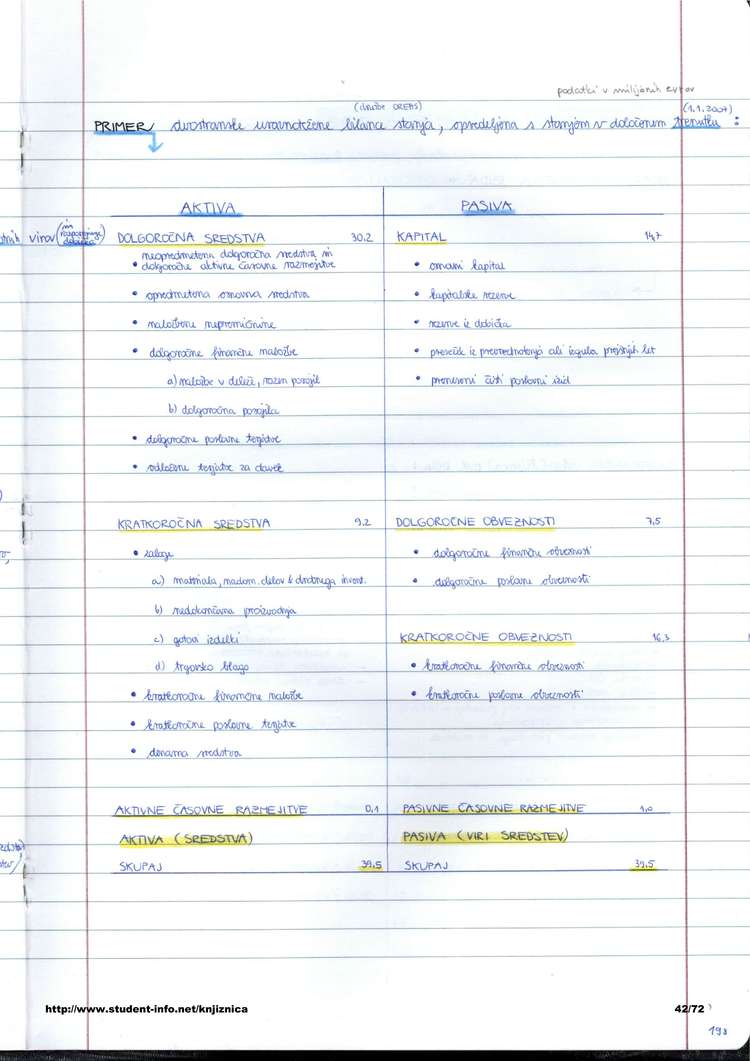 podatki v milijonih evrov
(družbe OREHS) (1.1.2007)
PRIMER dvostranske uravnotežene bilance stanja, opredeljena s stanjem v določenem trenutku :
AKTIVA
virov (in razporejanje dobička)
DOLGOROČNA SREDSTVA 30,2
neopredmetena dolgoročna sredstva in
• dolgoročne aktivne časovne razmejitve
• opredmetena osnovna sredstva
• naložbene nepremičnine
• dolgoročne finančne naložbe
a) naložbe v deleže, razen posojil
b) dolgoročna posojila
• dolgoročne poslovne terjatve
• odložene terjatve za davek
KRATKOROČNA SREDSTVA 9,2
• zaloge
a) materiala, nadom. delov & drobnega invent.
b) nedokončana proizvodnja
c) gotovi izdelki
d) trgovsko blago
• kratkoročne finančne naložbe
• kratkoročne poslovne terjatve
• denarna sredstva
AKTIVNE ČASOVNE RAZMEJITVE 0,1
AKTIVA (SREDSTVA)
SKUPAJ 39,5
PASIVA
KAPITAL 14,7
• osnovni kapital
• kapitalske rezerve
• rezerve iz dobička
• presežek iz prevrednotenja ali izguba prejšnjih let
• preneseni čisti poslovni izid
DOLGOROČNE OBVEZNOSTI 7,5
• dolgoročne finančne obveznosti
• dolgoročne poslovne obveznosti
KRATKOROČNE OBVEZNOSTI 16,3
• kratkoročne finančne obveznosti
• kratkoročne poslovne obveznosti
PASIVNE ČASOVNE RAZMEJITVE 1,0
PASIVA (VIRI SREDSTEV)
SKUPAJ 39,5
http://www.student-info.net/knjiznica 42/72